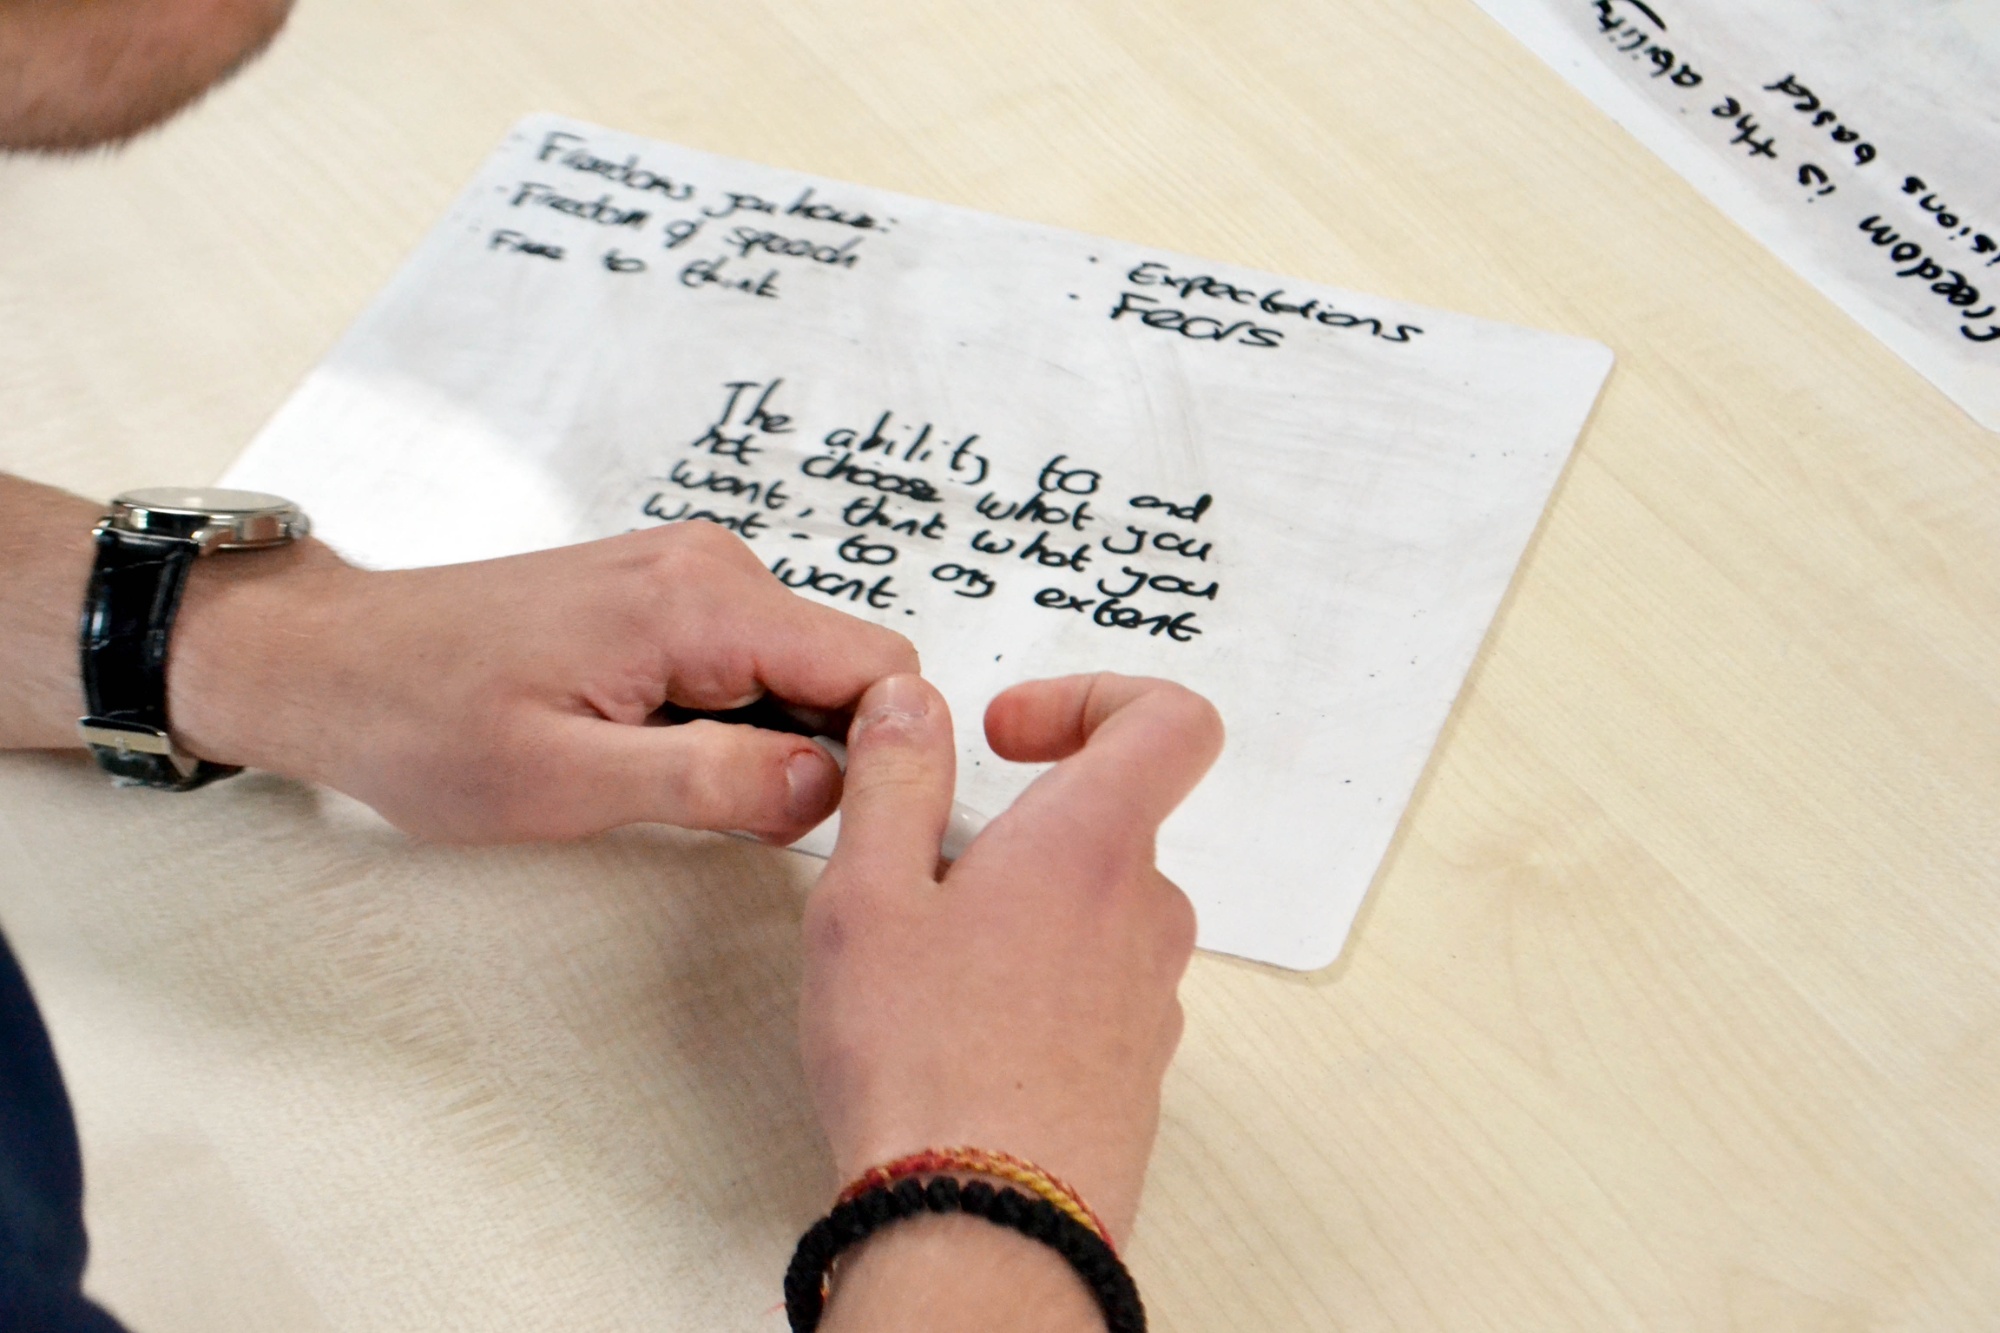 Freedoms you have:
- Freedom of speech
- Free to think
· Expectations
· Fears
The ability to and
not choose what you
want, think what you
want - to any extent
want.
freedom is the ability
isions based